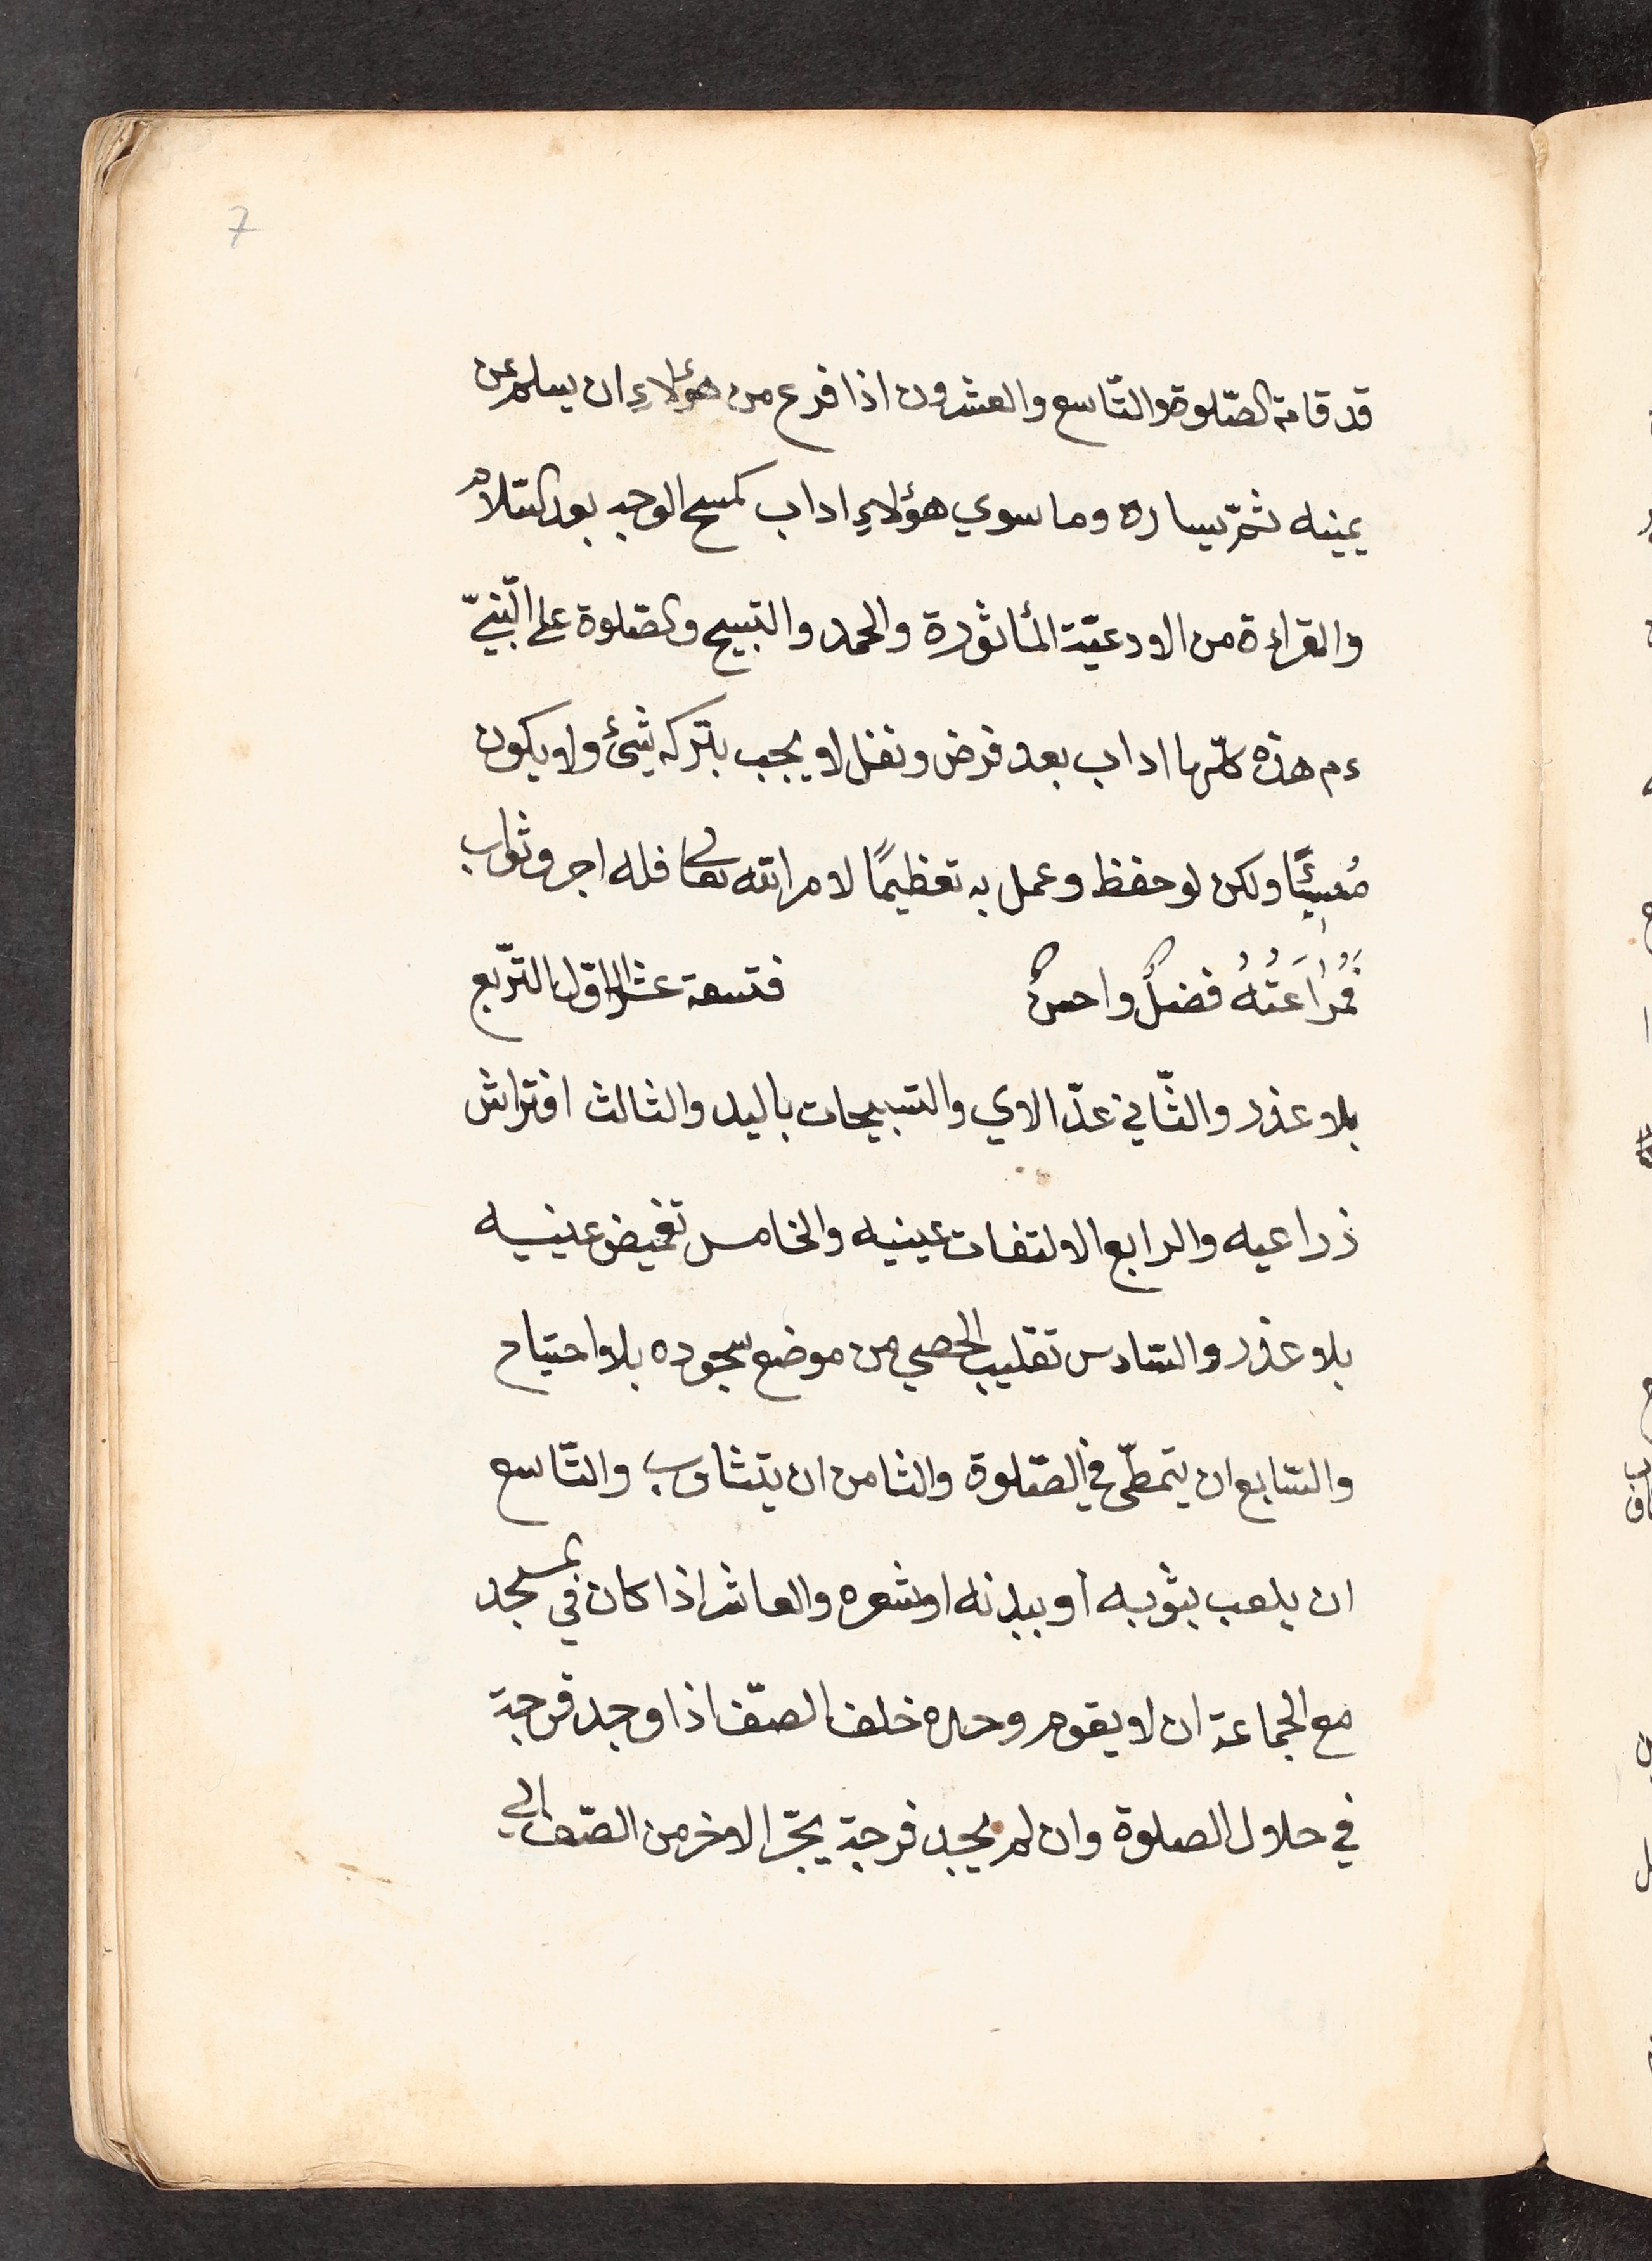 7
قد قامة الصّلوة والتّاسع والعشرون اذا فرع من هؤلاءِ ان يسلم عن
يمينه ثمّ يساره وما سوي هؤلاءِ اداب كمسح الوجه بعد السّلام
والقراءة من الاودعيّة المأثورة والحمد والتبيح والصّلوة على النّبيّ
ءم هذه كلّها اداب بعد فرض ونفل لا يجب بتركه شيئ ولا يكون
مُسِيئًا ولكن لو حفظ وعمل به تعظيمًا لامر الله تعالى فله اجر وثواب
فمُراعَتُهُ فضلٌ واحسن فتسعة عشر الاوّل التّربع
بلا عذر والثّاني عدّ الاي والتسبيحات باليد والثالث افتراش
ذراعيه والرابع الالتفات عينيه والخامس تغميض عينيه
بلا عذر والسّادس تقليب الحصي من موضع سجوده بلا احتياج
والسّابع ان يتمطّى في الصّلوة والثامن ان يتثاوب والتّاسع
ان يلعب بثوبه او ببدنه او شعره والعاشر اذا كان في المسجد
مع الجماعة ان لا يقوم وحده خلف الصّف اذا وجد فرجة
في حلال الصلوة وان لم يجد فرجة يجرّ الاخر من الصّف الي